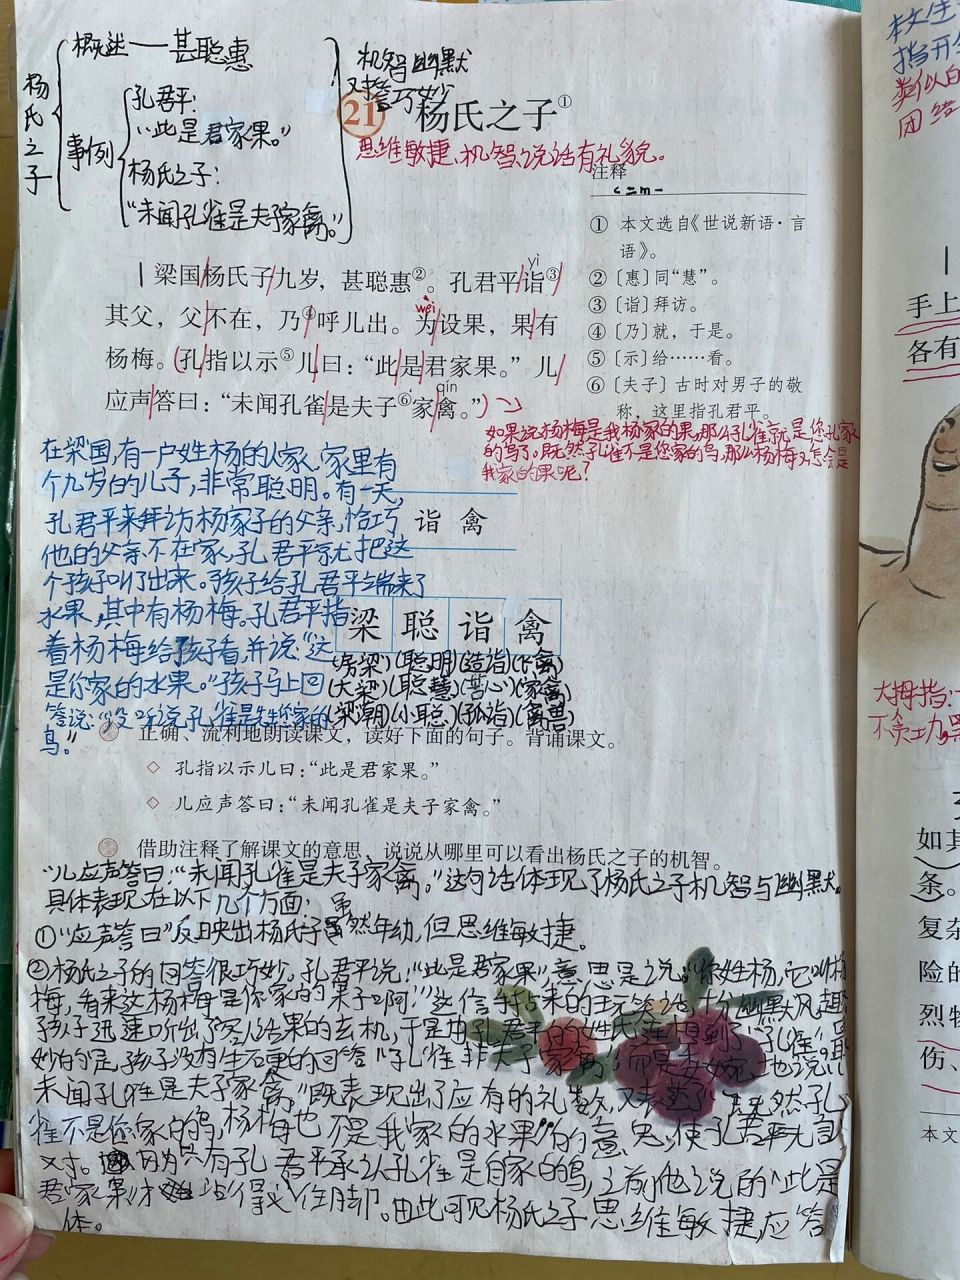 杨氏之子
概述——甚聪惠
事例
孔君平：
“此是君家果。”
杨氏之子：
“未闻孔雀是夫子家禽。”
机智幽默
又巧妙
21 杨氏之子①
思维敏捷、机智、说话有礼貌。
注释
① 本文选自《世说新语·言
语》。
② 〔惠〕同“慧”。
③ 〔诣〕拜访。
④ 〔乃〕就，于是。
⑤ 〔示〕给……看。
⑥ 〔夫子〕古时对男子的敬
称，这里指孔君平。
yì
梁国杨氏子九岁，甚聪惠②。孔君平诣③
wèi
其父，父不在，乃④呼儿出。为设果，果有
杨梅。孔指以示⑤儿曰：“此是君家果。”儿
qín
应声答曰：“未闻孔雀是夫子⑥家禽。”
如果说杨梅是我杨家的果，那么孔雀就是您孔家
的鸟了。既然孔雀不是您家的鸟，那么杨梅又怎会是
我家的果呢？
在梁国，有一户姓杨的人家，家里有
个九岁的儿子，非常聪明。有一天，
孔君平来拜访杨家子的父亲，恰巧
他的父亲不在家，孔君平就把这
个孩子叫了出来。孩子给孔君平端来了
水果，其中有杨梅。孔君平指
着杨梅给孩子看，并说：“这
是你家的水果。”孩子马上回
答说：“没听说孔雀是先生您家的
鸟。”
诣 禽
梁 聪 诣 禽
(房梁)(聪明)(造诣)(禽)
(大梁)(聪慧)(苦心)(家禽)
(梁潮)(小聪)(孤诣)(禽兽)
正确、流利地朗读课文，读好下面的句子。背诵课文。
◇ 孔指以示儿曰：“此是君家果。”
◇ 儿应声答曰：“未闻孔雀是夫子家禽。”
借助注释了解课文的意思，说说从哪里可以看出杨氏之子的机智。
“儿应声答曰：“未闻孔雀是夫子家禽。”这句话体现了杨氏之子机智与幽默。
具体表现在以下几个方面：
①“应声答曰”反映出杨氏子虽然年幼，但思维敏捷。
②杨氏之子的回答很巧妙。孔君平说：“此是君家果”，意思是说：“你姓杨，它叫杨
梅，看来这杨梅是你家的果子啊！”这信手拈来的玩笑话，十分幽默风趣
孩子迅速听出了客人话果的玄机，于是由孔君平的姓氏连想到了“孔雀”。最
妙的是，孩子没有生硬的回答“孔雀非夫子家禽”，而是委婉地说：“
未闻孔雀是夫子家禽”既表现出了应有的礼数，又表达了“既然孔
雀不是你家的鸟，杨梅也不是我家的水果”的意思，使孔君平无言以
对。因为只有孔君平承认孔雀是自家的鸟，之前他说的“此是
君家果”才站得住脚。由此可见杨氏之子思维敏捷，应答
手上
各有
如其
条。
复杂
险的
烈牺
伤、
本文